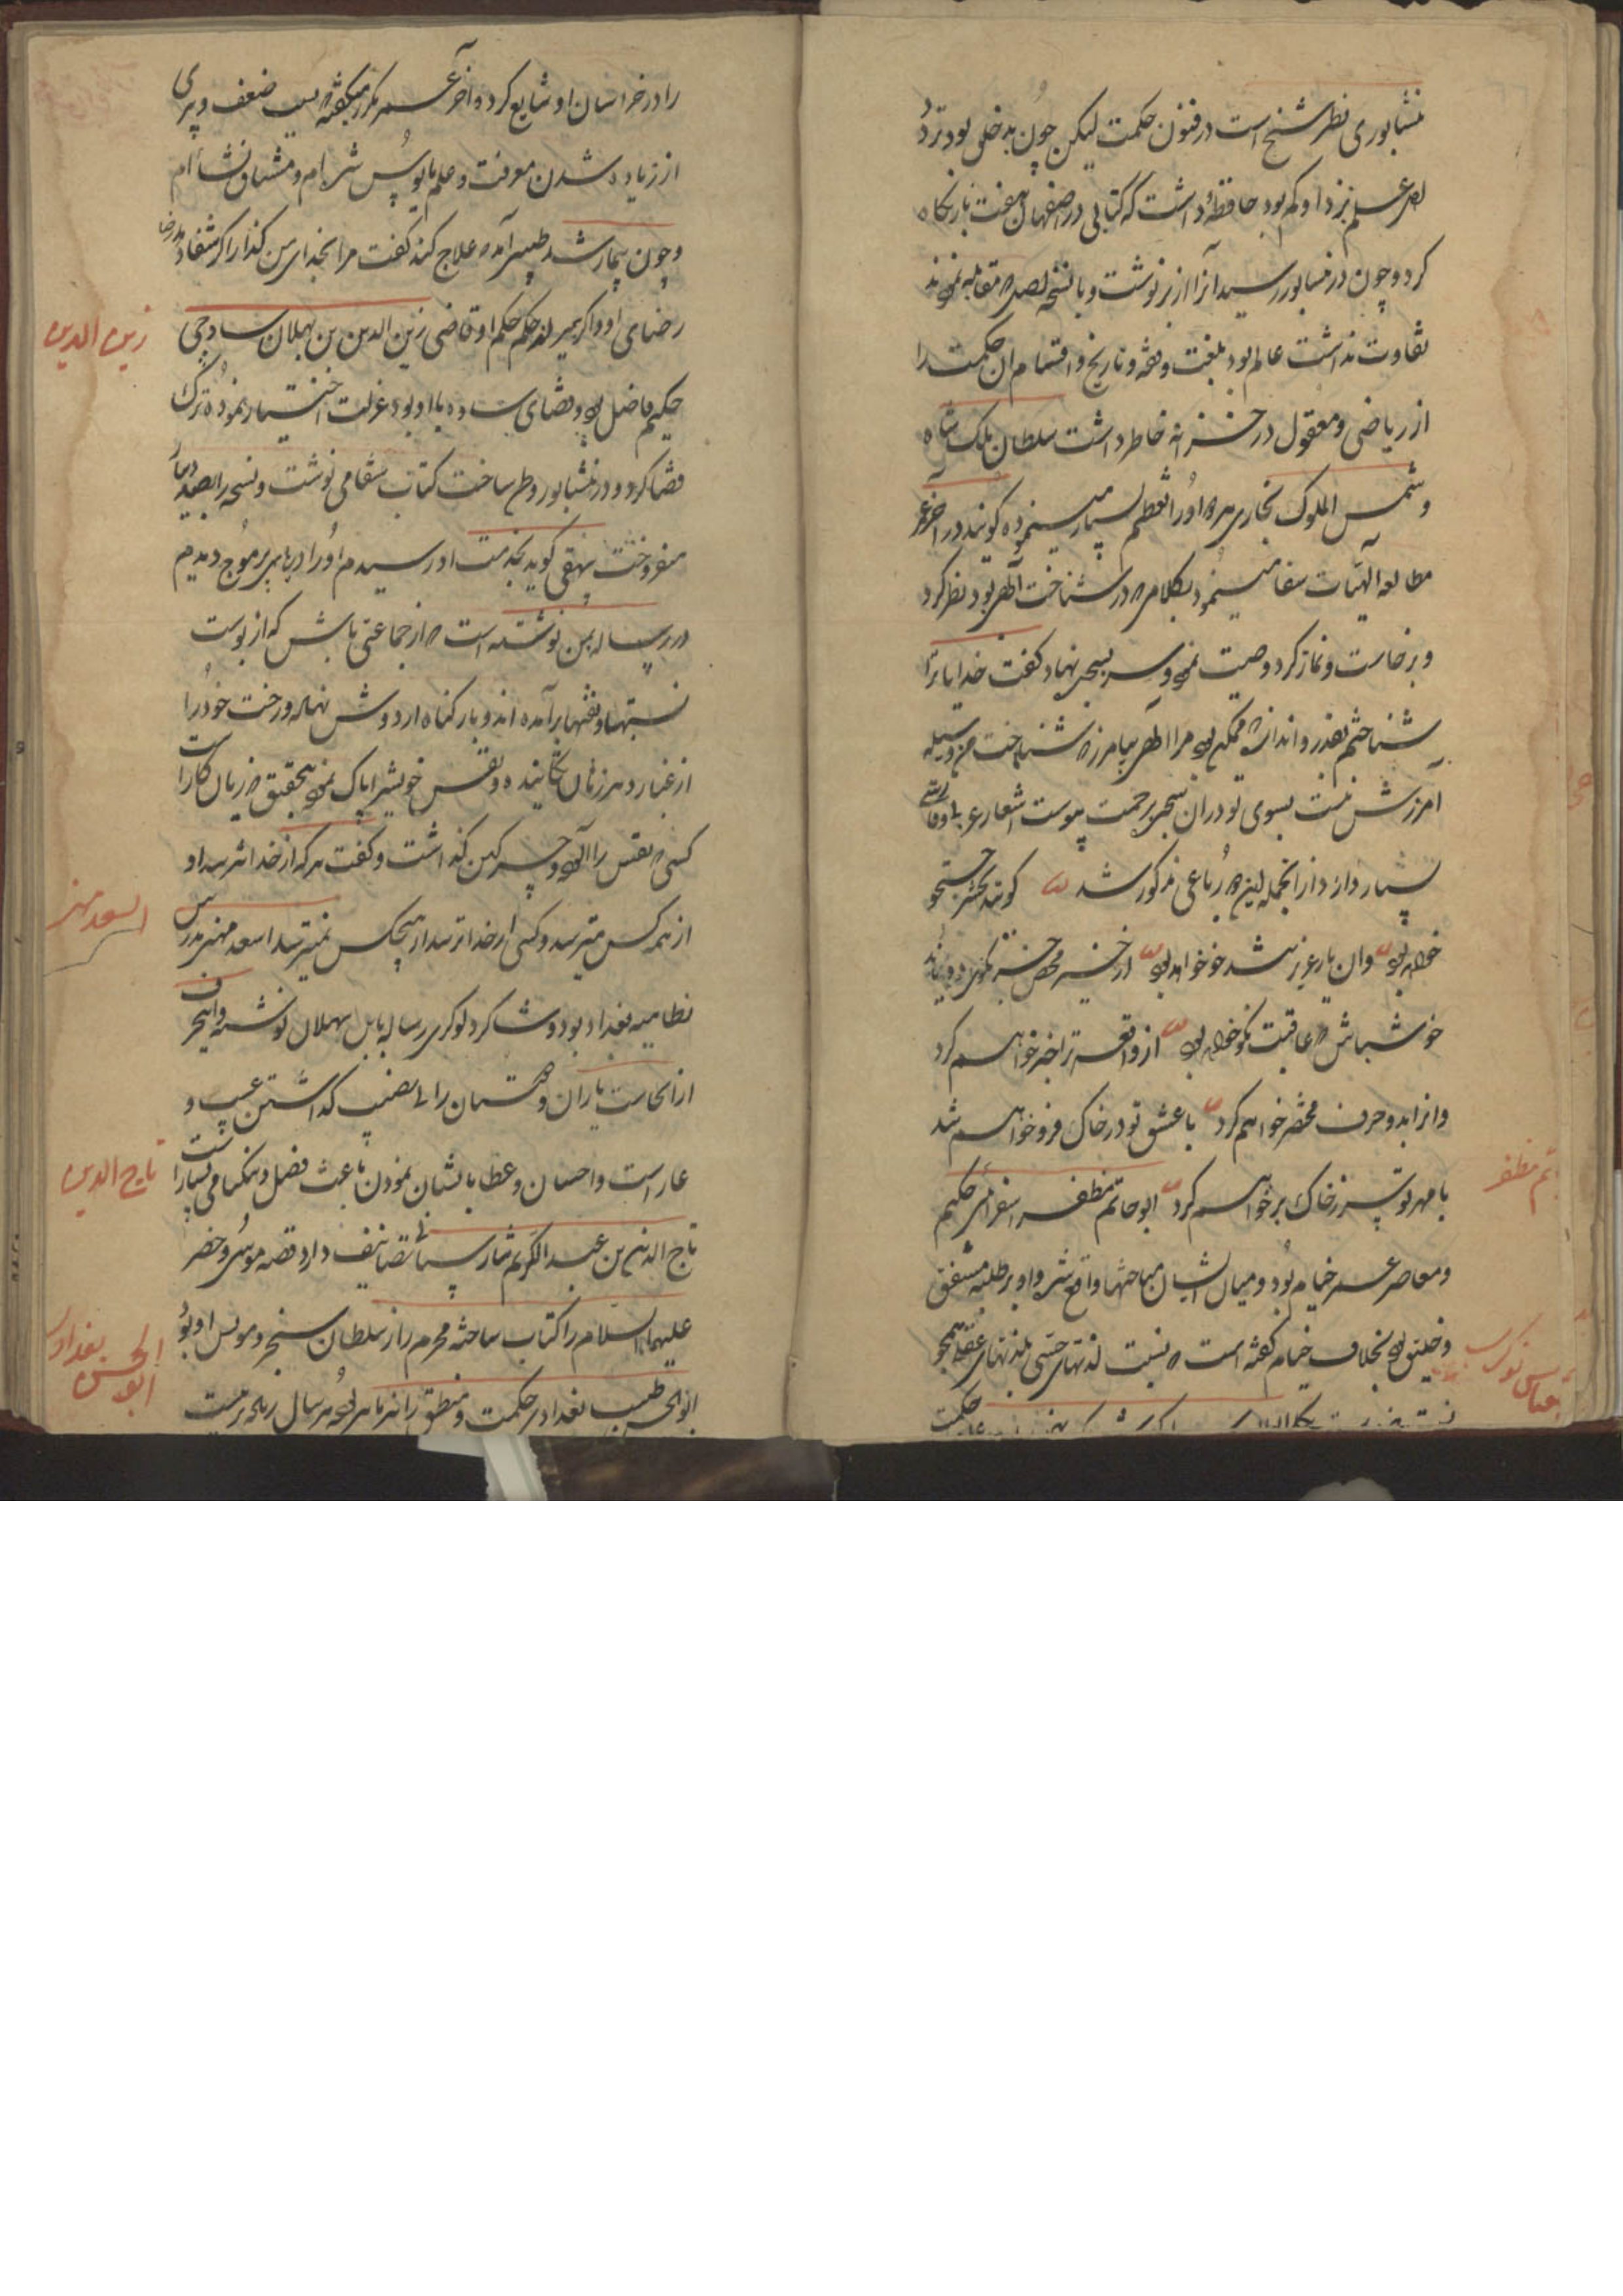 نشابوری نظیر شیخ است در فنون حکمت لیکن چون بدخلق بود تردد
علم نزد او کم بود حافظهٔ داشت که کتابی در اصفهان هفت بار نگاه
کرد و چون در نشابور رسید آنرا از بر نوشت و با نسخه اصل مقابله نمودند
تفاوت نداشت عالم بود بلغت و فقه و تاریخ و اقسام آن حکمت را
از ریاضی و معقول در خزانه خاطر داشت سلطان ملک شاه
و شمس الملوک بخاری اورا تعظیم بسیار مینموده گویند در آخر عمر
مطالعه الهیات شفا مینمود بکلامی که در شناخت الهی بود نظر کرد
و برخاست و نماز کرد و وصیت نمود و سر بسجده نهاد گفت خدایا ترا
شناختم بقدر و اندازه که ممکن بود مرا الهی بیامرز که شناخت من وسیله
آمرزش منست بسوی تو در آن سجده برحمت پیوست اشعار عربی و فارسی
بسیار دارد از انجمله این رباعی مذکور شد گویند بحشر جستجو
خواهد بود وان یار عزیز تند خو خواهد بود از خیر محض جز نکوئی ناید
خوش باش که عاقبت نکو خواهد بود از واقعه ترا خبر خواهم کرد
وانرا بدو حرف مختصر خواهم کرد با عشق تو در خاک فرو خواهم شد
با مهر تو سر ز خاک بر خواهم کرد ابو حاتم مظفر اسفرائی حکیم
و معاصر عمر خیام بود و میان ایشان مباحثها واقع شد و او بر طلبه مشفق
و خلیق بود بخلاف خیام گفته است که نسبت لذتهای حسی بلذتهای عقلی همچو
تم مظفر
را در خراسان او شایع کرد و آخر عمر مکرر میگفته که بسبب ضعف و پیری
از زیاده شدن معرفت و علم مایوس شده ام و مشتاق نشأه ام
و چون بیمار شد طبیبی آمد که علاج کند گفت مرا بخدای من گذار اگر شفا دهد رضا
رضای او و اگر بمیراند حکم حکم او قاضی زین الدین بن سهلان ساوجی
حکیم فاضل بود و قضای ساوه با او بود عزلت اختیار نموده ترک
قضا کرد و در نشابور وطن ساخت کتاب شفا می نوشت و نسخه را بصد دینار
میفروخت بیهقی گوید بخدمت او رسیدم اورا دریای پر موج دیدم
در رساله بمن نوشته است که از جماعتی باش که از پوست
نسبتها و نقشها برآمده اند و بار گناه از دوش نهاده و رخت خود را
از غبار دهر زمان تکانیده و نفس خویش را پاک نمود بتحقیق که زیان کار است
کسی که نفس را آلود و چرکین گذاشت و گفت هر که از خدا ترسد او
از همه کس میترسد و کسی از خدا ترسد از هیچکس نمیترسد اسعد میهنی مدرس
نظامیه بغداد بود و شاگرد لوکری رساله بابن سهلان نوشته و این حرف
از انجاست یاران و دوستان را بی نصیب گذاشتن عیب و
عار است و احسان و عطا بایشان نمودن باعث فضل و نیکنامی بسیار است
تاج الدین بن عبد الکریم شارستانی تصانیف دارد قصه موسی و خضر
علیهما السلام را کتاب ساخته محرم راز سلطان سنجر و مونس او بود
ابو الحسن طبیب بغداد در حکمت و منطق را نیز ماهر بود
زین الدین
اسعد میهنی
تاج الدین
ابو الحسن بغدادی